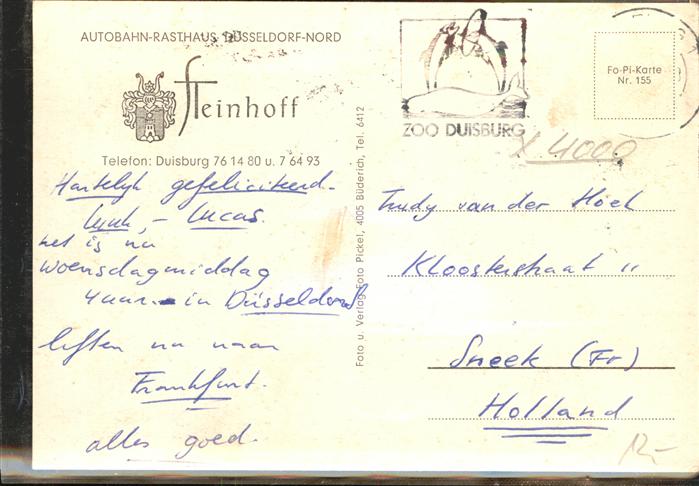 AUTOBAHN-RASTHAUS DÜSSELDORF-NORD
Steinhoff
Telefon: Duisburg 76 14 80 u. 7 64 93
Hartelijk gefeliciteerd.
Lucas.
het is nu
woensdagmiddag
4 uur in Düsseldorf
liften nu naar
Frankfurt.
alles goed.
Foto u. Verlag Foto Pickel, 4005 Büderich, Tel. 6412
ZOO DUISBURG
Fo-Pi-Karte
Nr. 155
X 4000
Trudy van der Hoek
Kloosterstraat 11
Sneek (Fr)
Holland
12,-